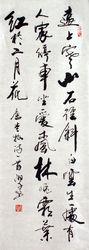 遠上寒山石徑斜白雲生處有
人家停車坐愛楓林晚霜葉
紅於二月花 唐杜牧詩一首